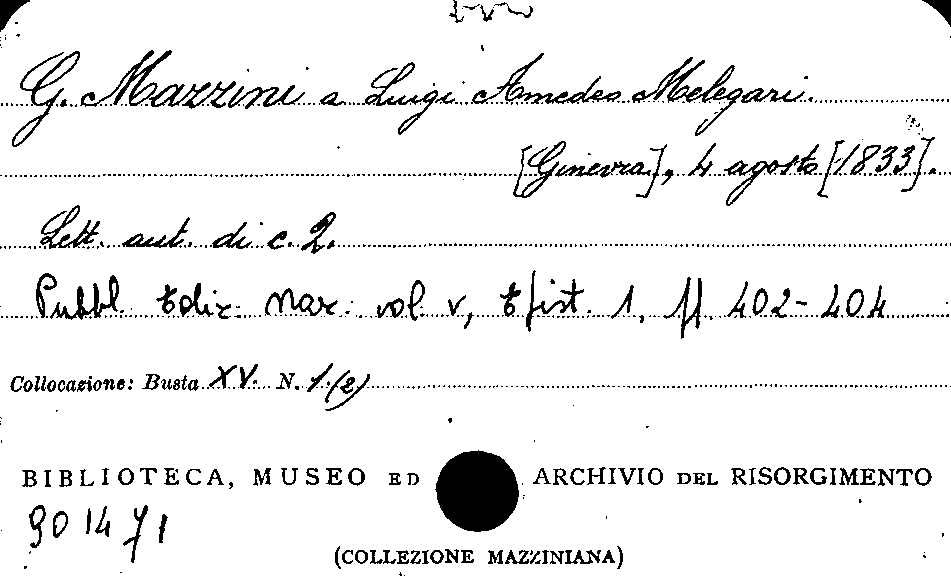 G. Mazzini a Luigi Amedeo Melegari.
[Ginevra], 4 agosto [1833].
Lett. aut. di c. 2.
Pubbl. Ediz. Naz. vol. V, Epist. 1, pp. 402-404
Collocazione: Busta XV. N. 1.(2)
BIBLIOTECA, MUSEO ED ARCHIVIO DEL RISORGIMENTO
901471
(COLLEZIONE MAZZINIANA)